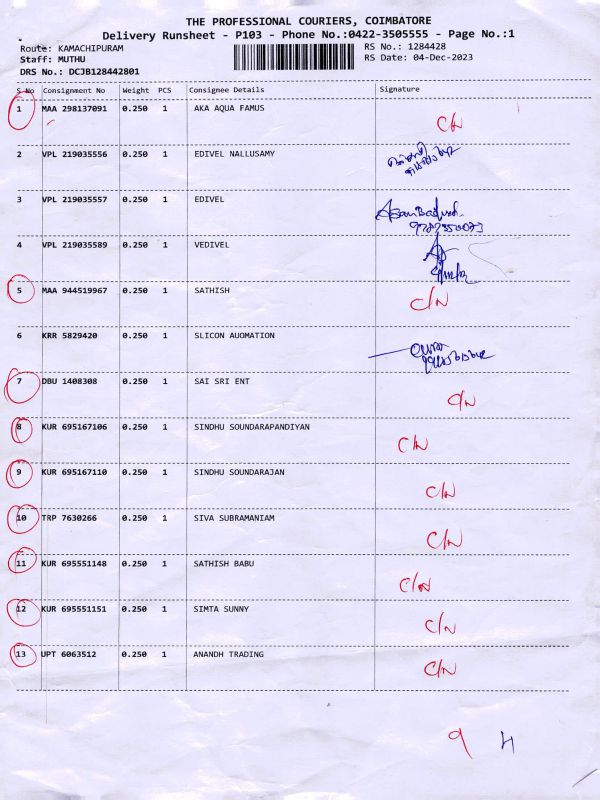 THE PROFESSIONAL COURIERS, COIMBATORE
Delivery Runsheet - P103 - Phone No.:0422-3505555 - Page No.:1
Route: KAMACHIPURAM RS No.: 1284428
Staff: MUTHU RS Date: 04-Dec-2023
DRS No.: DCJB128442801
S No Consignment No Weight PCS Consignee Details Signature
1 MAA 298137091 0.250 1 AKA AQUA FAMUS C/N
2 VPL 219035556 0.250 1 EDIVEL NALLUSAMY
3 VPL 219035557 0.250 1 EDIVEL
4 VPL 219035589 0.250 1 VEDIVEL
5 MAA 944519967 0.250 1 SATHISH C/N
6 KRR 5829420 0.250 1 SLICON AUOMATION
7 DBU 1408308 0.250 1 SAI SRI ENT C/N
8 KUR 695167106 0.250 1 SINDHU SOUNDARAPANDIYAN C/N
9 KUR 695167110 0.250 1 SINDHU SOUNDARAJAN C/N
10 TRP 7630266 0.250 1 SIVA SUBRAMANIAM C/N
11 KUR 695551148 0.250 1 SATHISH BABU C/N
12 KUR 695551151 0.250 1 SIMTA SUNNY C/N
13 UPT 6063512 0.250 1 ANANDH TRADING C/N
9 4